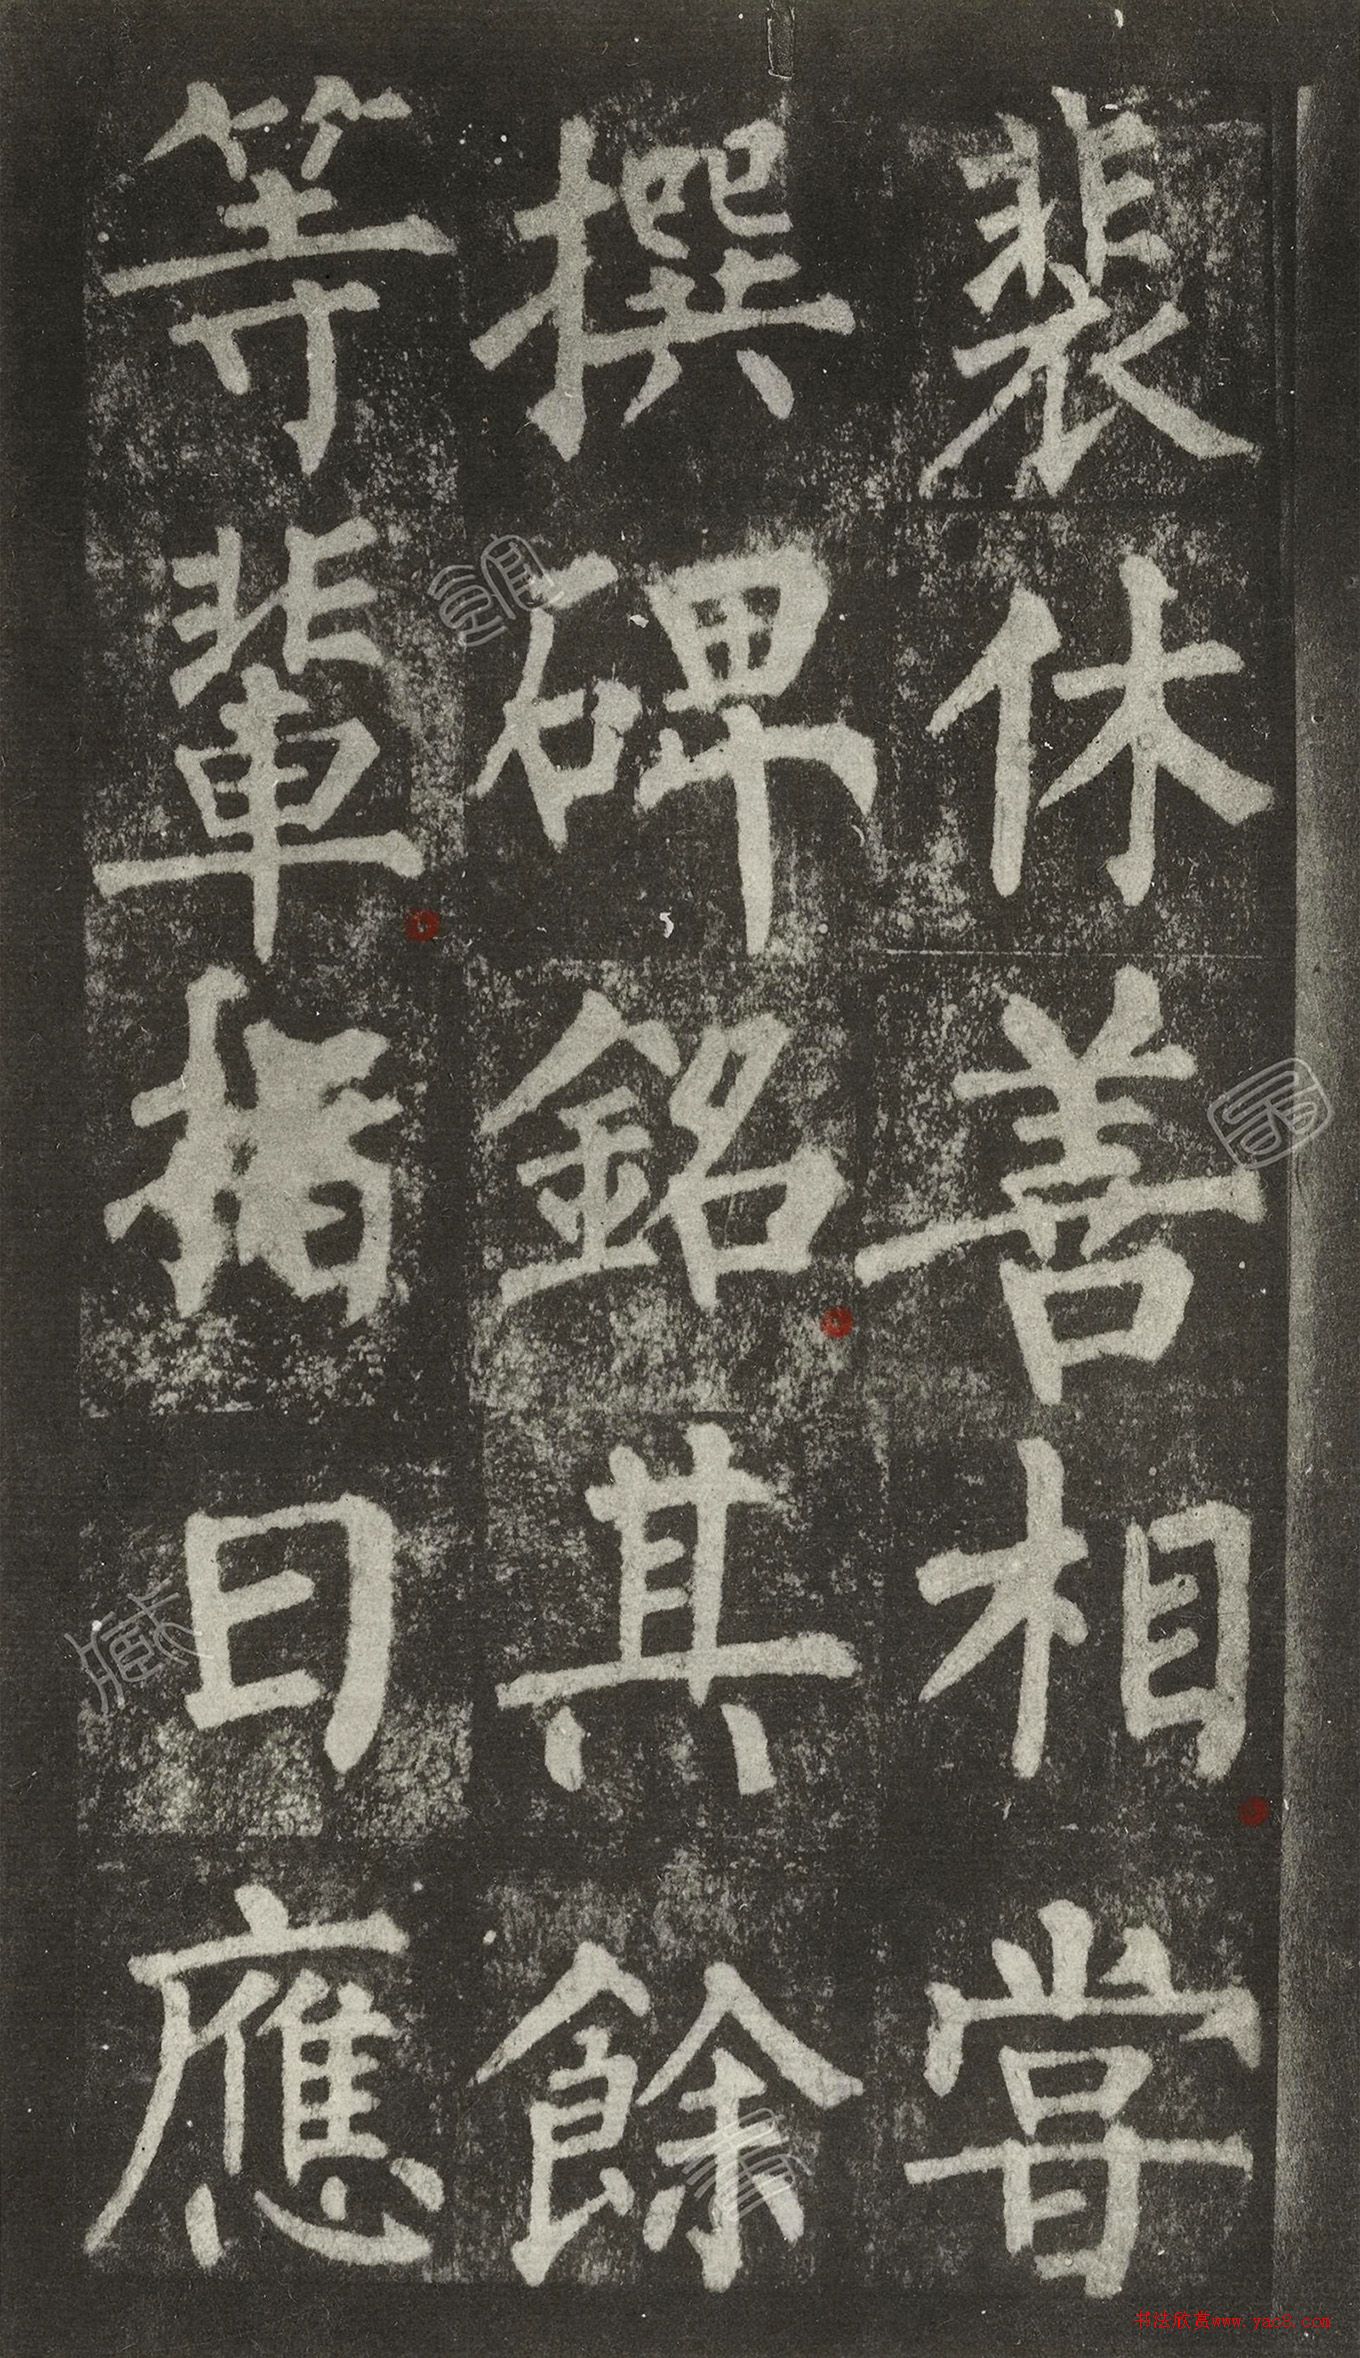 裴休善相甞
撰碑銘其餘
等輩日應
书法欣赏www.yac8.com